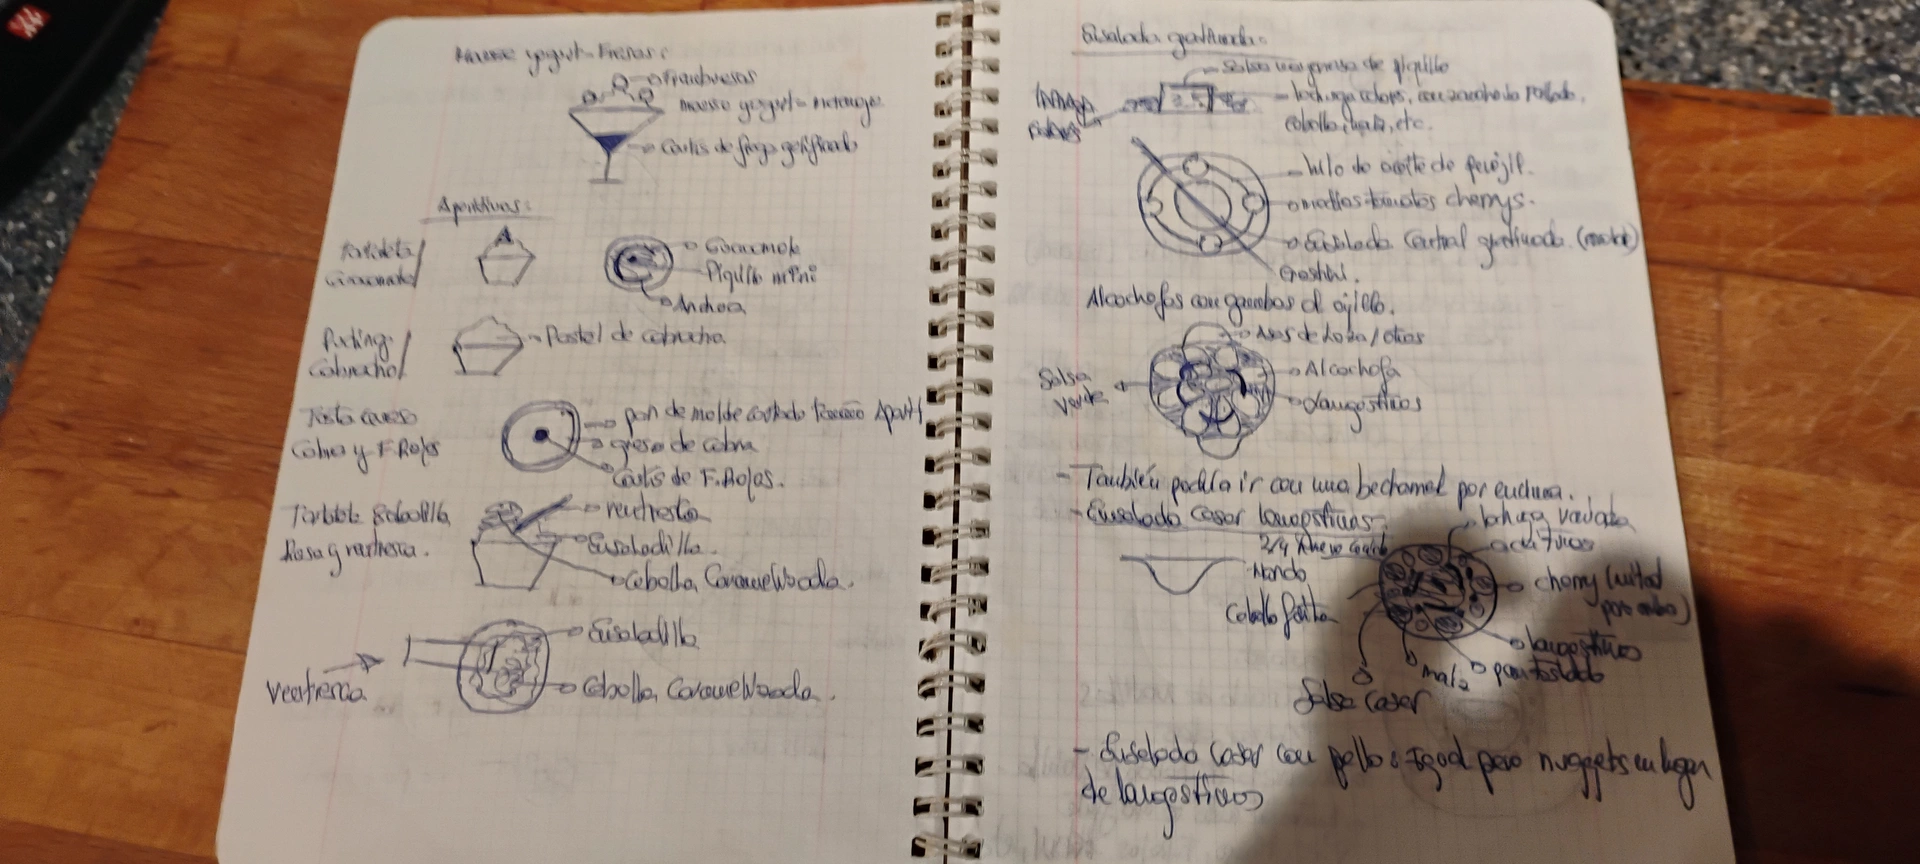 Mousse yogurt-Fresas:
Frambuesas
mousse yogurt-merengue
Coulis de fresa gelificado
Aperitivos:
Tartaleta
Guacamole
Guacamole
Piquillo mini
Anchoa
Puding
Cabracho
Pastel de cabracho
Tosta queso
Cabra y F. Rojos
pan de molde cortado
queso de cabra
Coulis de F. Rojos.
Tartaleta Ensaladilla
Rusa y ventresca.
ventresca
Ensaladilla.
Cebolla Caramelizada.
Ensaladilla
Cebolla Caramelizada.
ventresca
Ensalada gratinada:
Salsa vinagresa de piquillo
lechuga colors, con zanahoria rallada,
cebolla, maíz, etc.
hilo de aceite de perejil.
medios tomates cherrys.
Ensalada Central gratinada (molde)
Alcachofas con gambas al ajillo.
Aros de
Salsa
verde
Alcachofa
Langostinos
- También podría ir con una bechamel por encima.
- Ensalada cesar langostinos.
lechuga variada
Hondo
Cebolla frita
cherry (mitad
langostinos
maíz
pan tostado
Salsa cesar
- Ensalada cesar con pollo: Igual pero nuggets en lugar
de langostinos